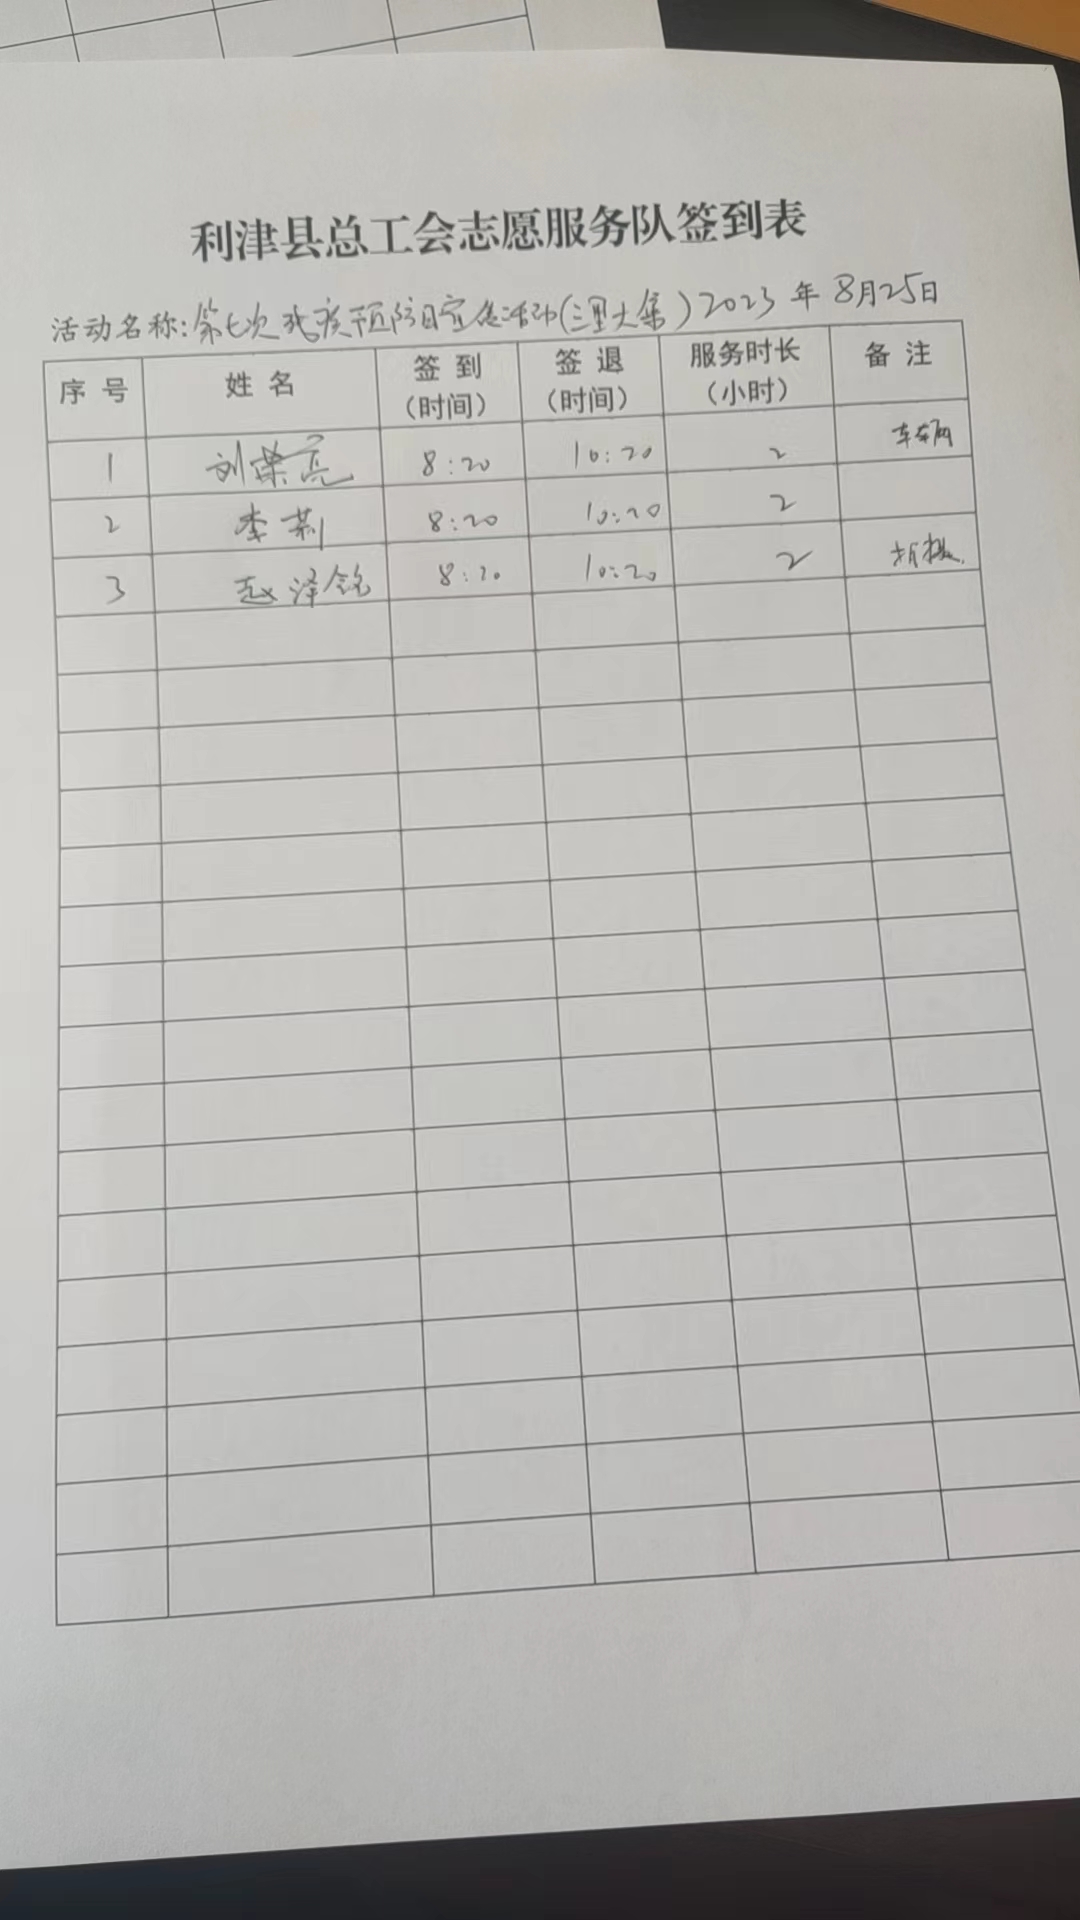 利津县总工会志愿服务队签到表
活动名称:第七次残疾预防日宣传活动(三里大集) 2023年8月25日
序号 姓名 签到(时间) 签退(时间) 服务时长(小时) 备注
1 刘荣亮 8:20 10:20 2 车辆
2 李莉 8:20 10:20 2
3 赵泽铭 8:20 10:20 2